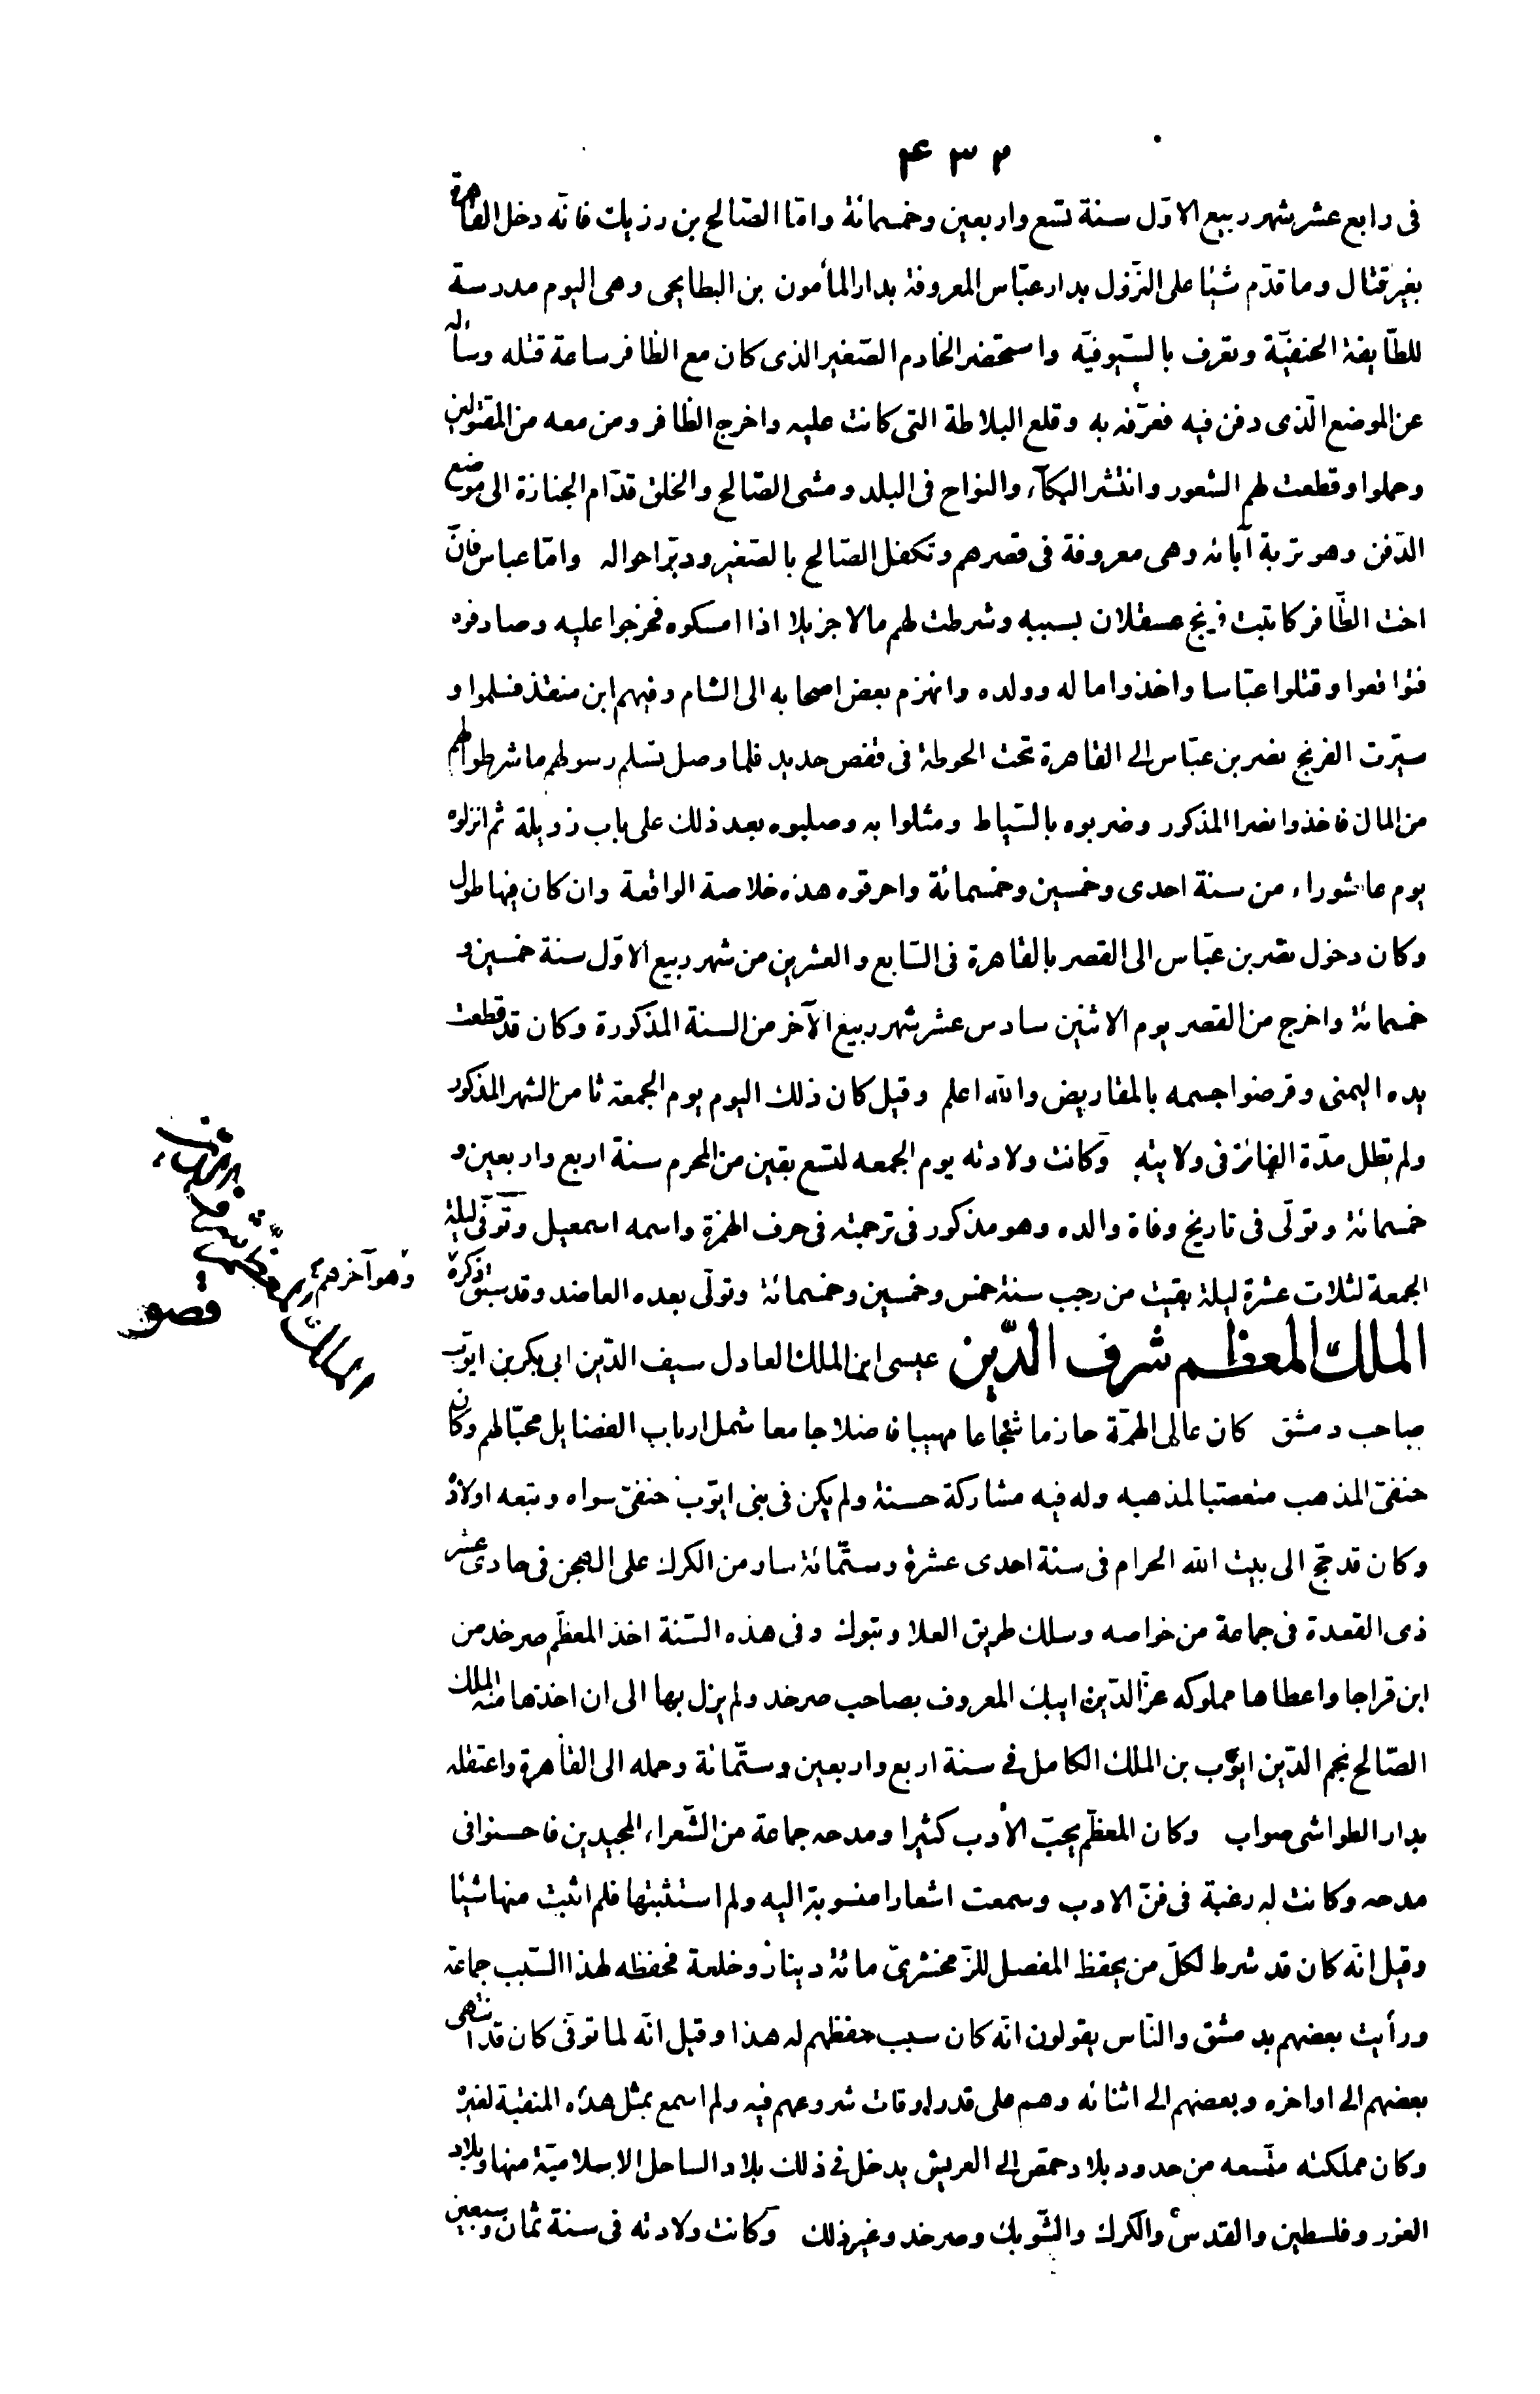 ۴۳۲
فى رابع عشر شهر ربيع الاوّل سنة تسع واربعين وخمسمائة وامّا الصّالح بن رزيك فانّه دخل القاهرة
بغير قتال وما قدّم شيئا على النّزول بدار عبّاس المعروفة بدار المأمون بن البطايحى وهى اليوم مدرسة
للطّايفة الحنفيّة وتعرف بالسّيوفيّه واستحضر الخادم الصّغير الذى كان مع الظافر ساعة قتله وسأله
عن الموضع الّذى دفن فيه فعرّفه به وقلع البلاطة التى كانت عليه واخرج الظافر ومن معه من المقتولين
وحملوا وقطعت لهم الشعور وانتشر البكآء والنواح فى البلد ومشى الصّالح والخلق قدّام الجنازة الى موضع
الدّفن وهو تربة آبائه وهى معروفة فى قصرهم وتكفل الصّالح بالصّغير ودبّر احواله وامّا عباس فانّ
اخت الظّافر كاتبت فرنج عسقلان بسببه وشرطت لهم مالا جزيلا اذا امسكوه فخرجوا عليه وصادفوه
فتواقعوا وقتلوا عبّاسا واخذوا ماله وولده وانهزم بعض اصحابه الى الشام وفيهم ابن منقذ فسلموا و
سيّرت الفرنج نصر بن عبّاس الى القاهرة تحت الحوطة فى قفص حديد فلما وصل تسلم رسولهم ما شرطوا لهم
من المال فاخذوا نصرا المذكور وضربوه بالسّياط ومثلوا به وصلبوه بعد ذلك على باب زويلة ثم انزلوه
يوم عاشوراء من سنة احدى وخمسين وخمسمائة واحرقوه هذه خلاصة الواقعة وان كان فيها طول
وكان دخول نصر بن عبّاس الى القصر بالقاهرة فى السّابع والعشرين من شهر ربيع الاوّل سنة خمسين و
خمسمائة واخرج من القصر يوم الاثنين سادس عشر شهر ربيع الآخر من السنة المذكورة وكان قد قطعت
يده اليمنى وقرضوا جسمه بالمقاريض والله اعلم وقيل كان ذلك اليوم يوم الجمعة ثامن الشهر المذكور
ولم تطل مدّة الفائز فى ولايته وكانت ولادته يوم الجمعه لتسع بقين من المحرم سنة اربع واربعين و
خمسمائة وتولّى فى تاريخ وفاة والده وهو مذكور فى ترجمته فى حرف الهمزة واسمه اسمعيل وتوفّى ليلة
الجمعة لثلاث عشرة ليلة بقيت من رجب سنة خمس وخمسين وخمسمائة وتولّى بعده العاضد وقد سبق ذكره
وهو آخرهم
الملك المعظم شرف الدّين عيسى ابن الملك العادل سيف الدّين ابى بكر بن ايوّب
صاحب دمشق كان عالى الهمّة حازما شجاعا مهيبا فاضلا جامعا شمل ارباب الفضايل محبّا لهم وكان
حنفىّ المذهب متعصّبا لمذهبه وله فيه مشاركة حسنة ولم يكن فى بنى ايوّب حنفىّ سواه وتبعه اولاده
وكان قد حجّ الى بيت الله الحرام فى سنة احدى عشرة وستّمائة سار من الكرك على الهجن فى حادى عشر
ذى القعدة فى جماعة من خواصه وسلك طريق العلا وتبوك وفى هذه السّنة اخذ المعظّم صرخد من
ابن قراجا واعطاها مملوكه عزّ الدّين ايبك المعروف بصاحب صرخد ولم يزل بها الى ان اخذها منه الملك
الصّالح نجم الدّين ايوّب بن الملك الكامل فى سنة اربع واربعين وستّمائة وحمله الى القاهرة واعتقله
بدار الطواشى صواب وكان المعظّم يحبّ الأدب كثيرا ومدحه جماعة من الشّعراء المجيدين فاحسنوا فى
مدحه وكانت له رغبة فى فنّ الادب وسمعت اشعارا منسوبة اليه ولم استثبتها فلم اثبت منها شيئا
وقيل انّه كان قد شرط لكلّ من يحفظ المفصل للزّمخشرىّ مائة دينار وخلعة فحفظه لهذا السّبب جماعة
ورأيت بعضهم بدمشق والنّاس يقولون انّه كان سبب حفظهم له هذا وقيل انّه لما توفّى كان قد انتهى
بعضهم الى اواخره وبعضهم الى اثنائه وهم على قدر اوقات شروعهم فيه ولم اسمع بمثل هذه المنقبة لغيره
وكان مملكته متّسعه من حدود بلاد حمص الى العريش يدخل فى ذلك بلاد الساحل الاسلاميّة منها وبلاد
الغور وفلسطين والقدس والكرك والشّوبك وصرخد وغير ذلك وكانت ولادته فى سنة ثمان وسبعين